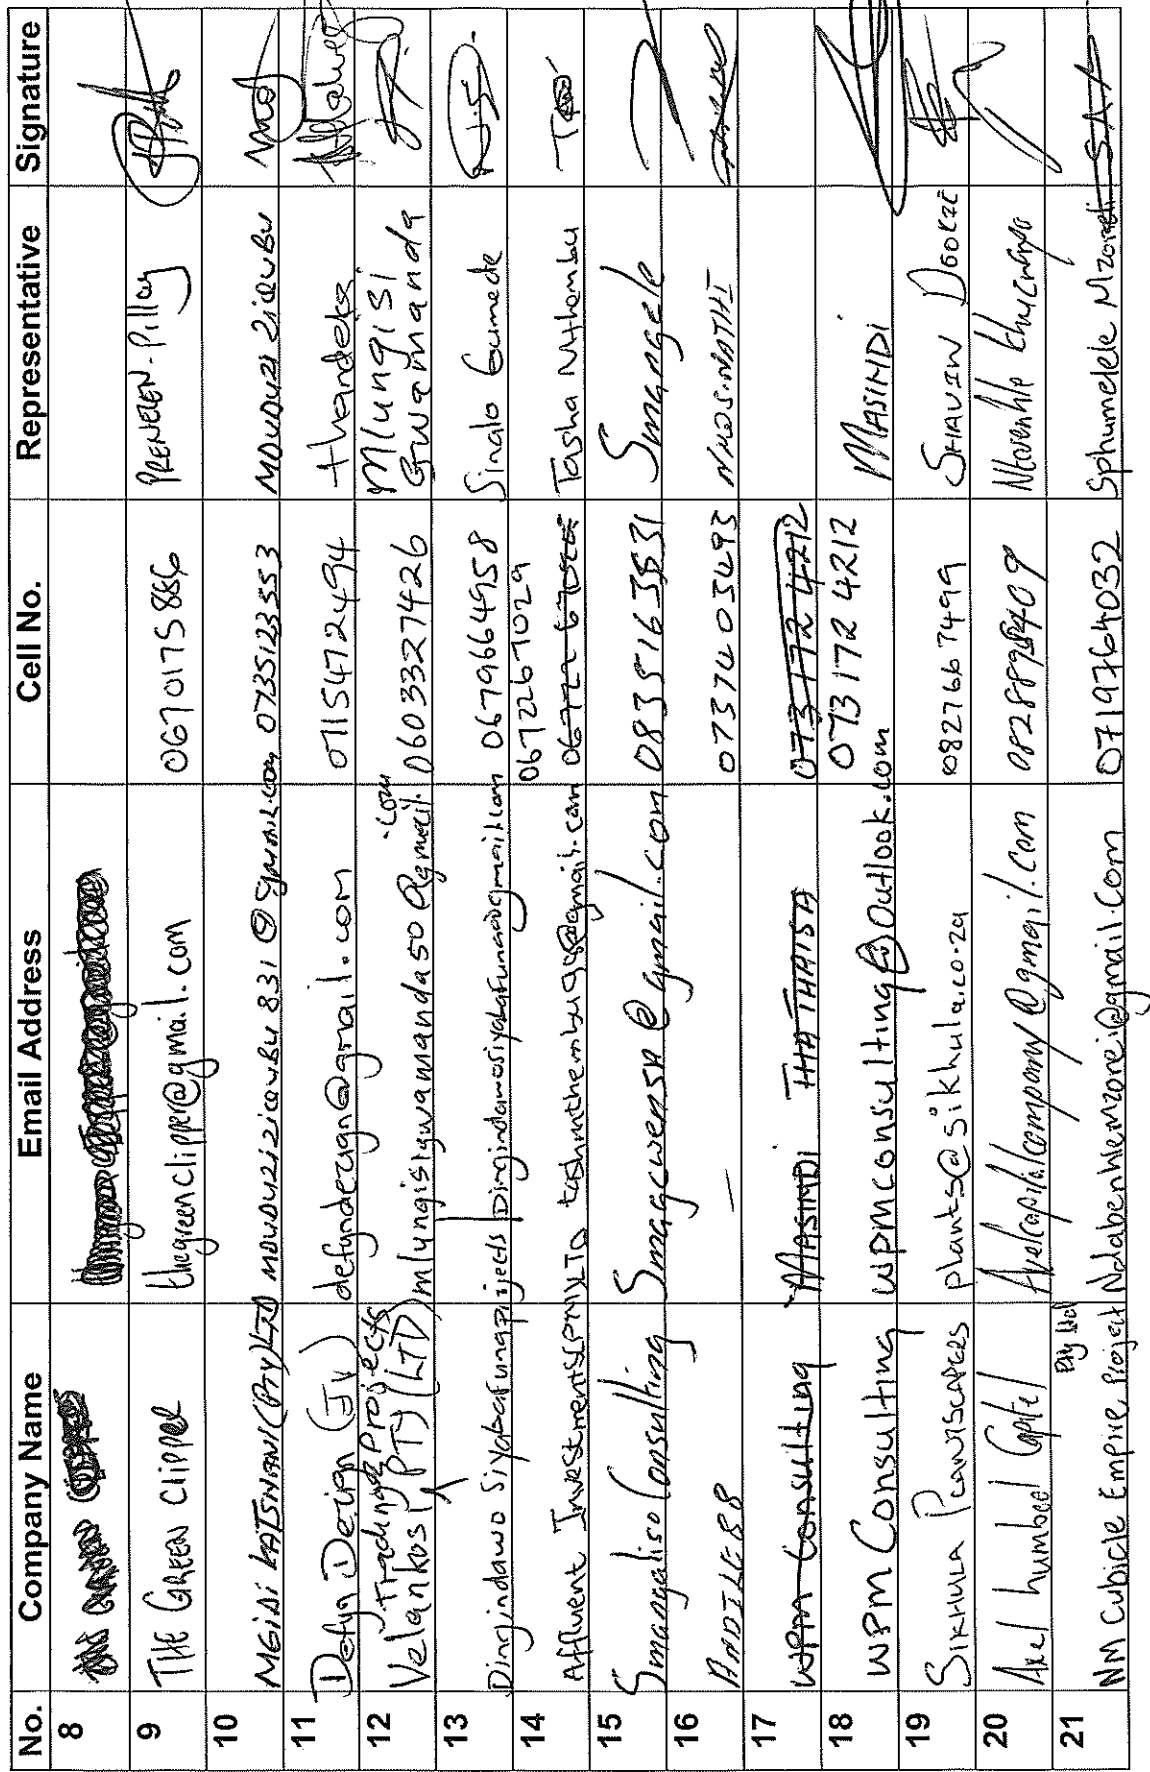 No. Company Name Email Address Cell No. Representative Signature
8
9 THE GREEN CLIPPER thegreenclipper@gmail.com 0670175886 PRENELEN-Pillay
10 MGIDI KATSHANI (PTY) LTD MDUDUZIZICWUBU831@gmail.com 0735123553 MDUDUZI ZICWUBU
11 Defyn Design (JV) defyndezign@gmail.com 0715472494 thandeka
12 Velankosi Trading & Projects PTY (LTD) mlungisigwamanda50@gmail.com 0603327426 Mlungisi Gwamanda
13 Dingindawo Siyabafunga projects Dingindawosiyabafunga@gmail.com 0679664958 Sinalo Gumede
14 Affluent Investments (PTY) LTD 0672267029 Tasha Mthembu
15 Smangaliso Consulting Smagcwensa@gmail.com 0835163531 Smangele
16 ANDILE88 — 0737403493 NKOSINATHI
17 WPM Consulting MASIMDI THATHAISA 073 172 4212
18 WPM Consulting wpmconsulting@Outlook.com 073172 4212 MASIMDI
19 SIKHULA PLANTSCAPES plants@sikhula.co.za 0827667499 SHAVIN DOOKIE
20 Axel humbel Capital Axelcapitalcompany@gmail.com
21 NM Cubicle Empire Project Pty Ltd Ndabenhlemzonei@gmail.com 0719764032 Sphumelele